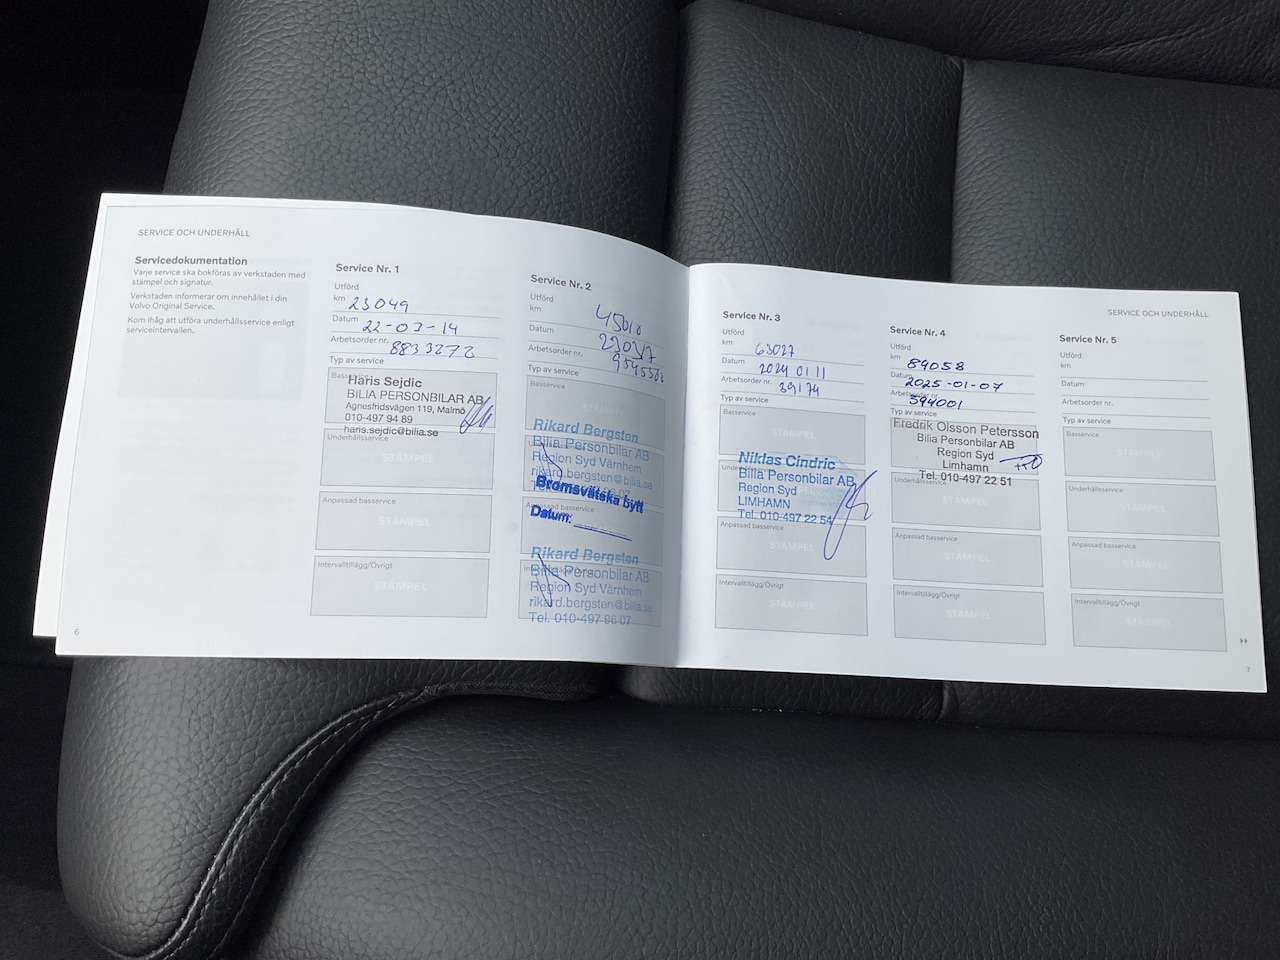 SERVICE OCH UNDERHÅLL
Servicedokumentation
Varje service ska bokföras av verkstaden med
stämpel och signatur.
Verkstaden informerar om innehållet i din
Volvo Original Service.
Kom ihåg att utföra underhållsservice enligt
serviceintervallen.
6
Service Nr. 1
Utförd
km 23049
Datum 22-03-14
Arbetsorder nr. 8833272
Typ av service
Haris Sejdic
BILIA PERSONBILAR AB
Agnesfridsvägen 119, Malmö
010-497 94 89
haris.sejdic@bilia.se
Underhållsservice
STÄMPEL
Anpassad basservice
STÄMPEL
Intervalltillägg/Övrigt
STÄMPEL
Service Nr. 2
Utförd
km 45010
Datum
Arbetsorder nr.
Typ av service
Basservice
STÄMPEL
Rikard Bergsten
Bilia Personbilar AB
Region Syd Värnhem
rikard.bergsten@bilia.se
Bromsvätska bytt
Datum:
Rikard Bergsten
Bilia Personbilar AB
Region Syd Värnhem
rikard.bergsten@bilia.se
Tel. 010-497 96 07
Service Nr. 3
Utförd
km 63027
Datum 2024 01 11
Arbetsorder nr. 39174
Typ av service
Basservice
STÄMPEL
Niklas Cindric
Bilia Personbilar AB
Region Syd
LIMHAMN
Tel. 010-497 22 54
Anpassad basservice
STÄMPEL
Intervalltillägg/Övrigt
STÄMPEL
SERVICE OCH UNDERHÅLL
Service Nr. 4
Utförd
km 89058
Datum 2025-01-07
Arbetsorder nr. 594001
Typ av service
Fredrik Olsson Petersson
Bilia Personbilar AB
Region Syd
Limhamn
Tel. 010-497 22 51
Underhållsservice
STÄMPEL
Anpassad basservice
STÄMPEL
Intervalltillägg/Övrigt
STÄMPEL
Service Nr. 5
Utförd
km
Datum
Arbetsorder nr.
Typ av service
Basservice
STÄMPEL
Underhållsservice
STÄMPEL
Anpassad basservice
STÄMPEL
Intervalltillägg/Övrigt
STÄMPEL
7